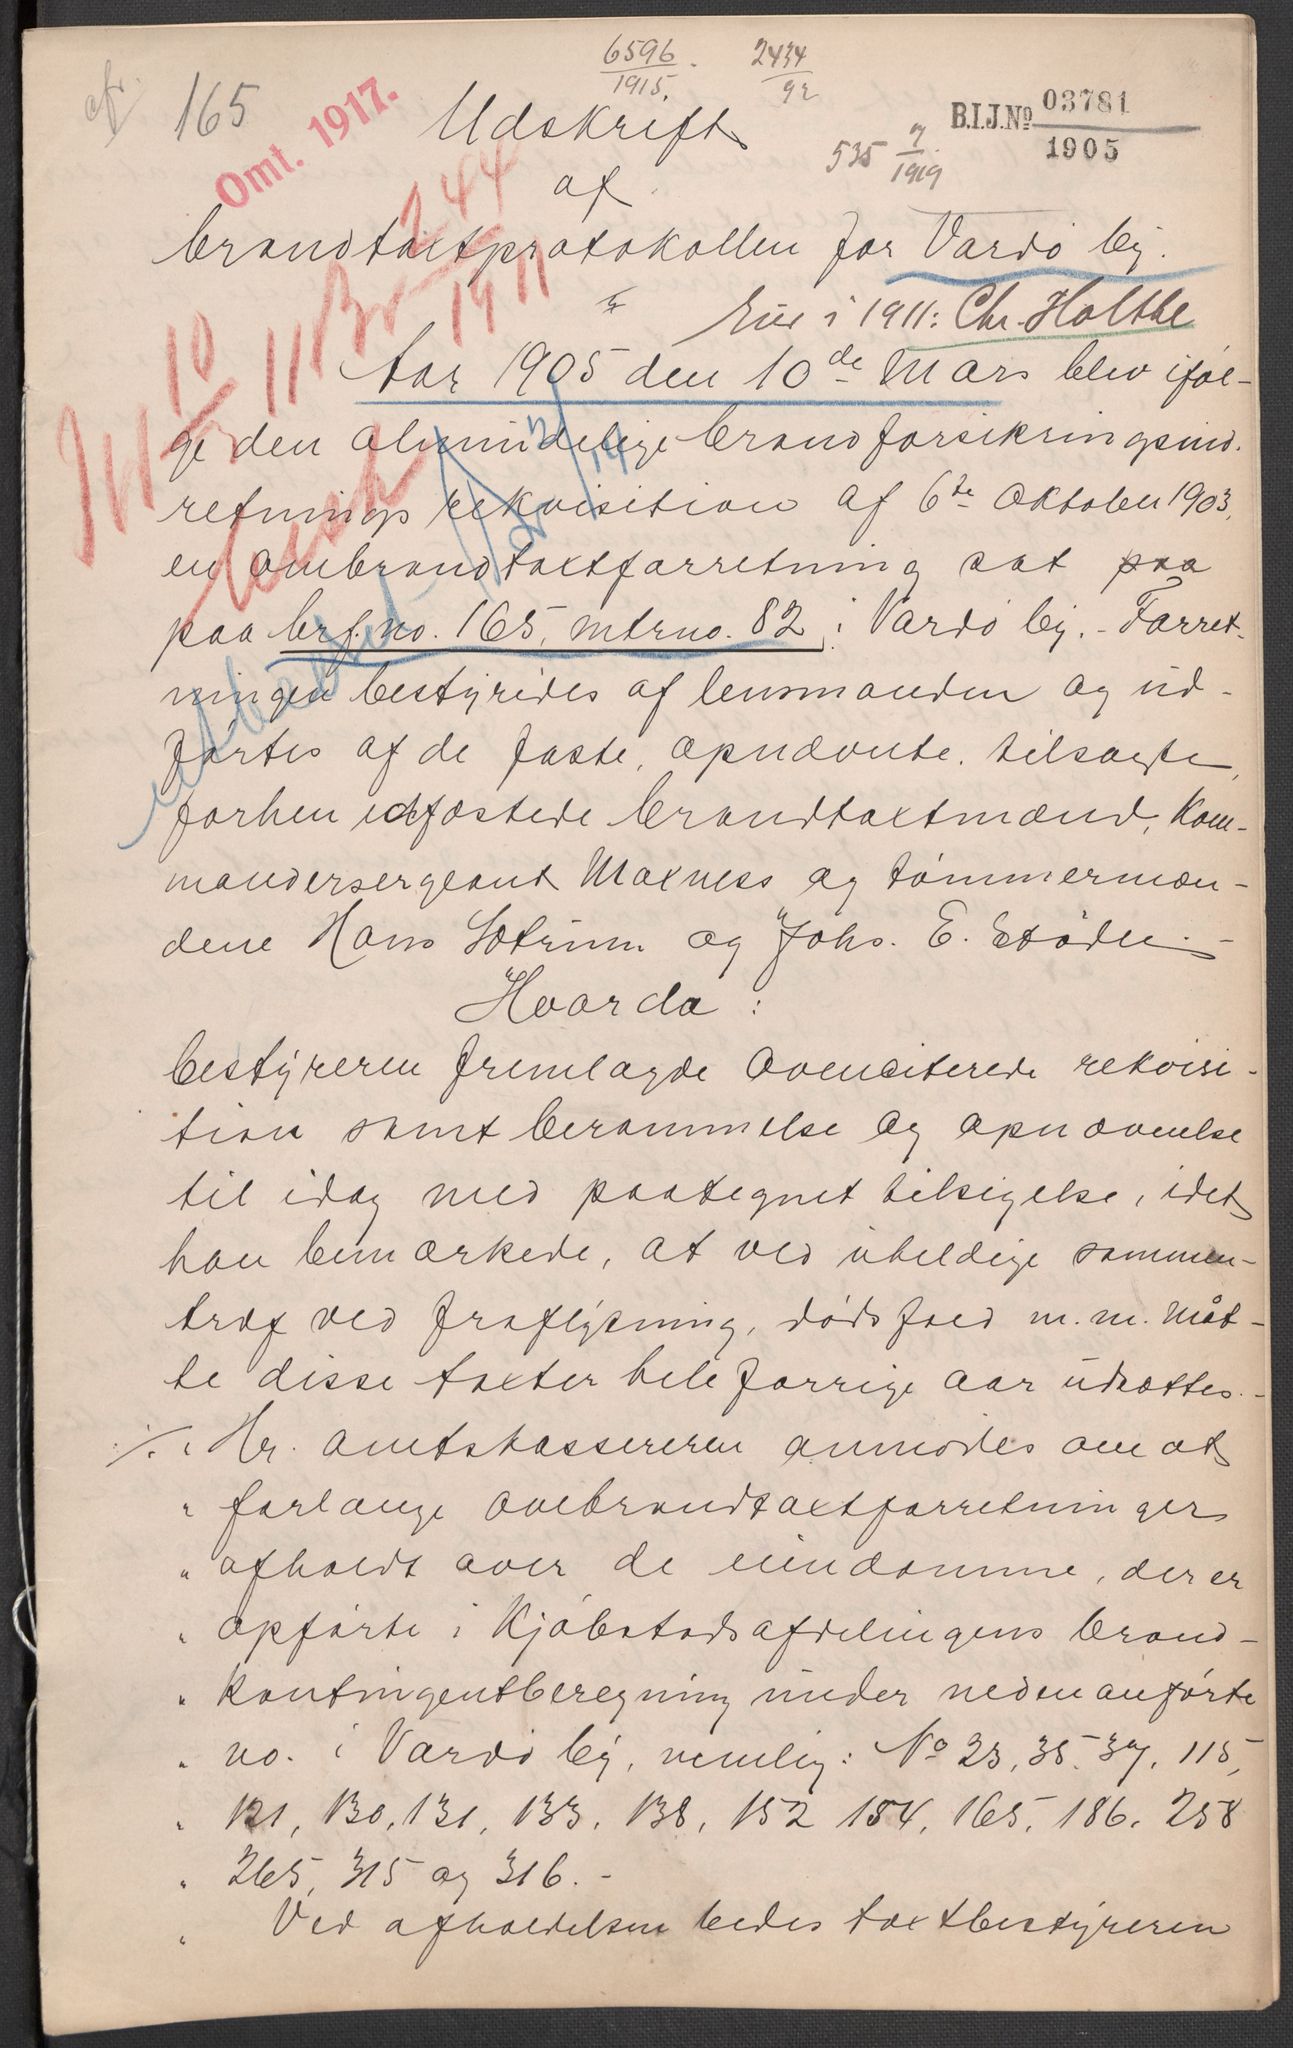 afr. 165
Omt. 1917.
6596/1915. 2434/92
535 7/1919
B.I.J.No 03781/1905
Udskrift
af
brandtaxtprotokollen for Vardö by.
Eier i 1911: Chr. Holthe
Aar 1905 den 10de Mars blev iföl-
ge den almindelige brandforsikringsind-
retnings rekvisition af 6te Oktober 1903,
en ombrandtaxtforretning sat paa
paa brf. no. 165, mtrno. 82 i Vardö by. - Forret-
ningen bestyredes af lensmanden og ud-
førtes af de faste, opnævnte, tilsagte,
forhen edfæstede brandtaxtmænd, Kom-
mandersergeant Maxness og tömmermæn-
dene Hans Sotrum og Johs. E. Stöde. -
Hvorda:
bestyreren fremlagde ovenciterede rekvisi-
tion samt berammelse og opnævnelse
til idag med paategnet tilsigelse, idet
han bemærkede, at ved uheldige sammen-
træf ved fraflytning, dödsfald m.m. måt-
te disse taxter hele forrige aar udsættes. -
./. " Hr. amtskassereren anmodes om at
" forlange ombrandtaxtforretninger
" afholdt over de eiendomme, der er
" opförte i Kjöbstadsafdelingens brand-
" kontingentberegning under nedenanförte
" no. i Vardö by, nemlig: No 23, 35. 37. 115,
" 121, 130, 131, 133, 138, 152 154, 165, 186. 258
" 265, 315 og 316. -
" Ved afholdelsen bedes taxtbestyreren